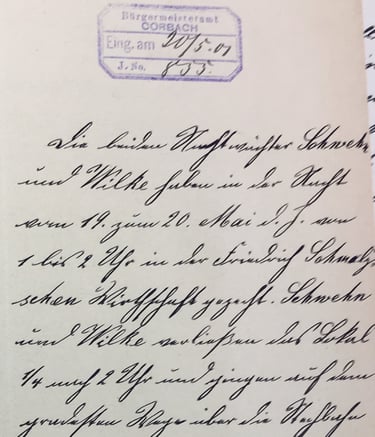 Bürgermeisteramt
CORBACH
Eing. am 20/5.01
J. No. 855.
Die beiden Nachtwächter Schwehn
und Wilke haben in der Nacht
vom 19. zum 20. Mai d. J. von
1 bis 2 Uhr in der Friedrich Schmalz-
schen Wirthschaft gezecht. Schwehn
und Wilke verließen das Lokal
1/4 nach 2 Uhr und gingen auf dem
gradesten Wege über die Stechbahn